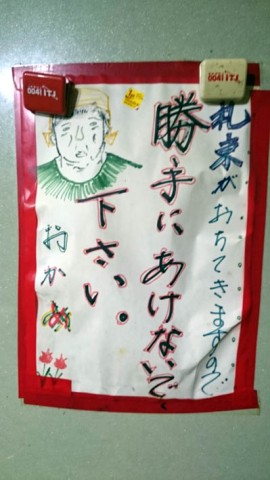 札束がおちてきますので
勝手にあけないで
下さい。
おかめ
0041 ITJ
0041 ITJ